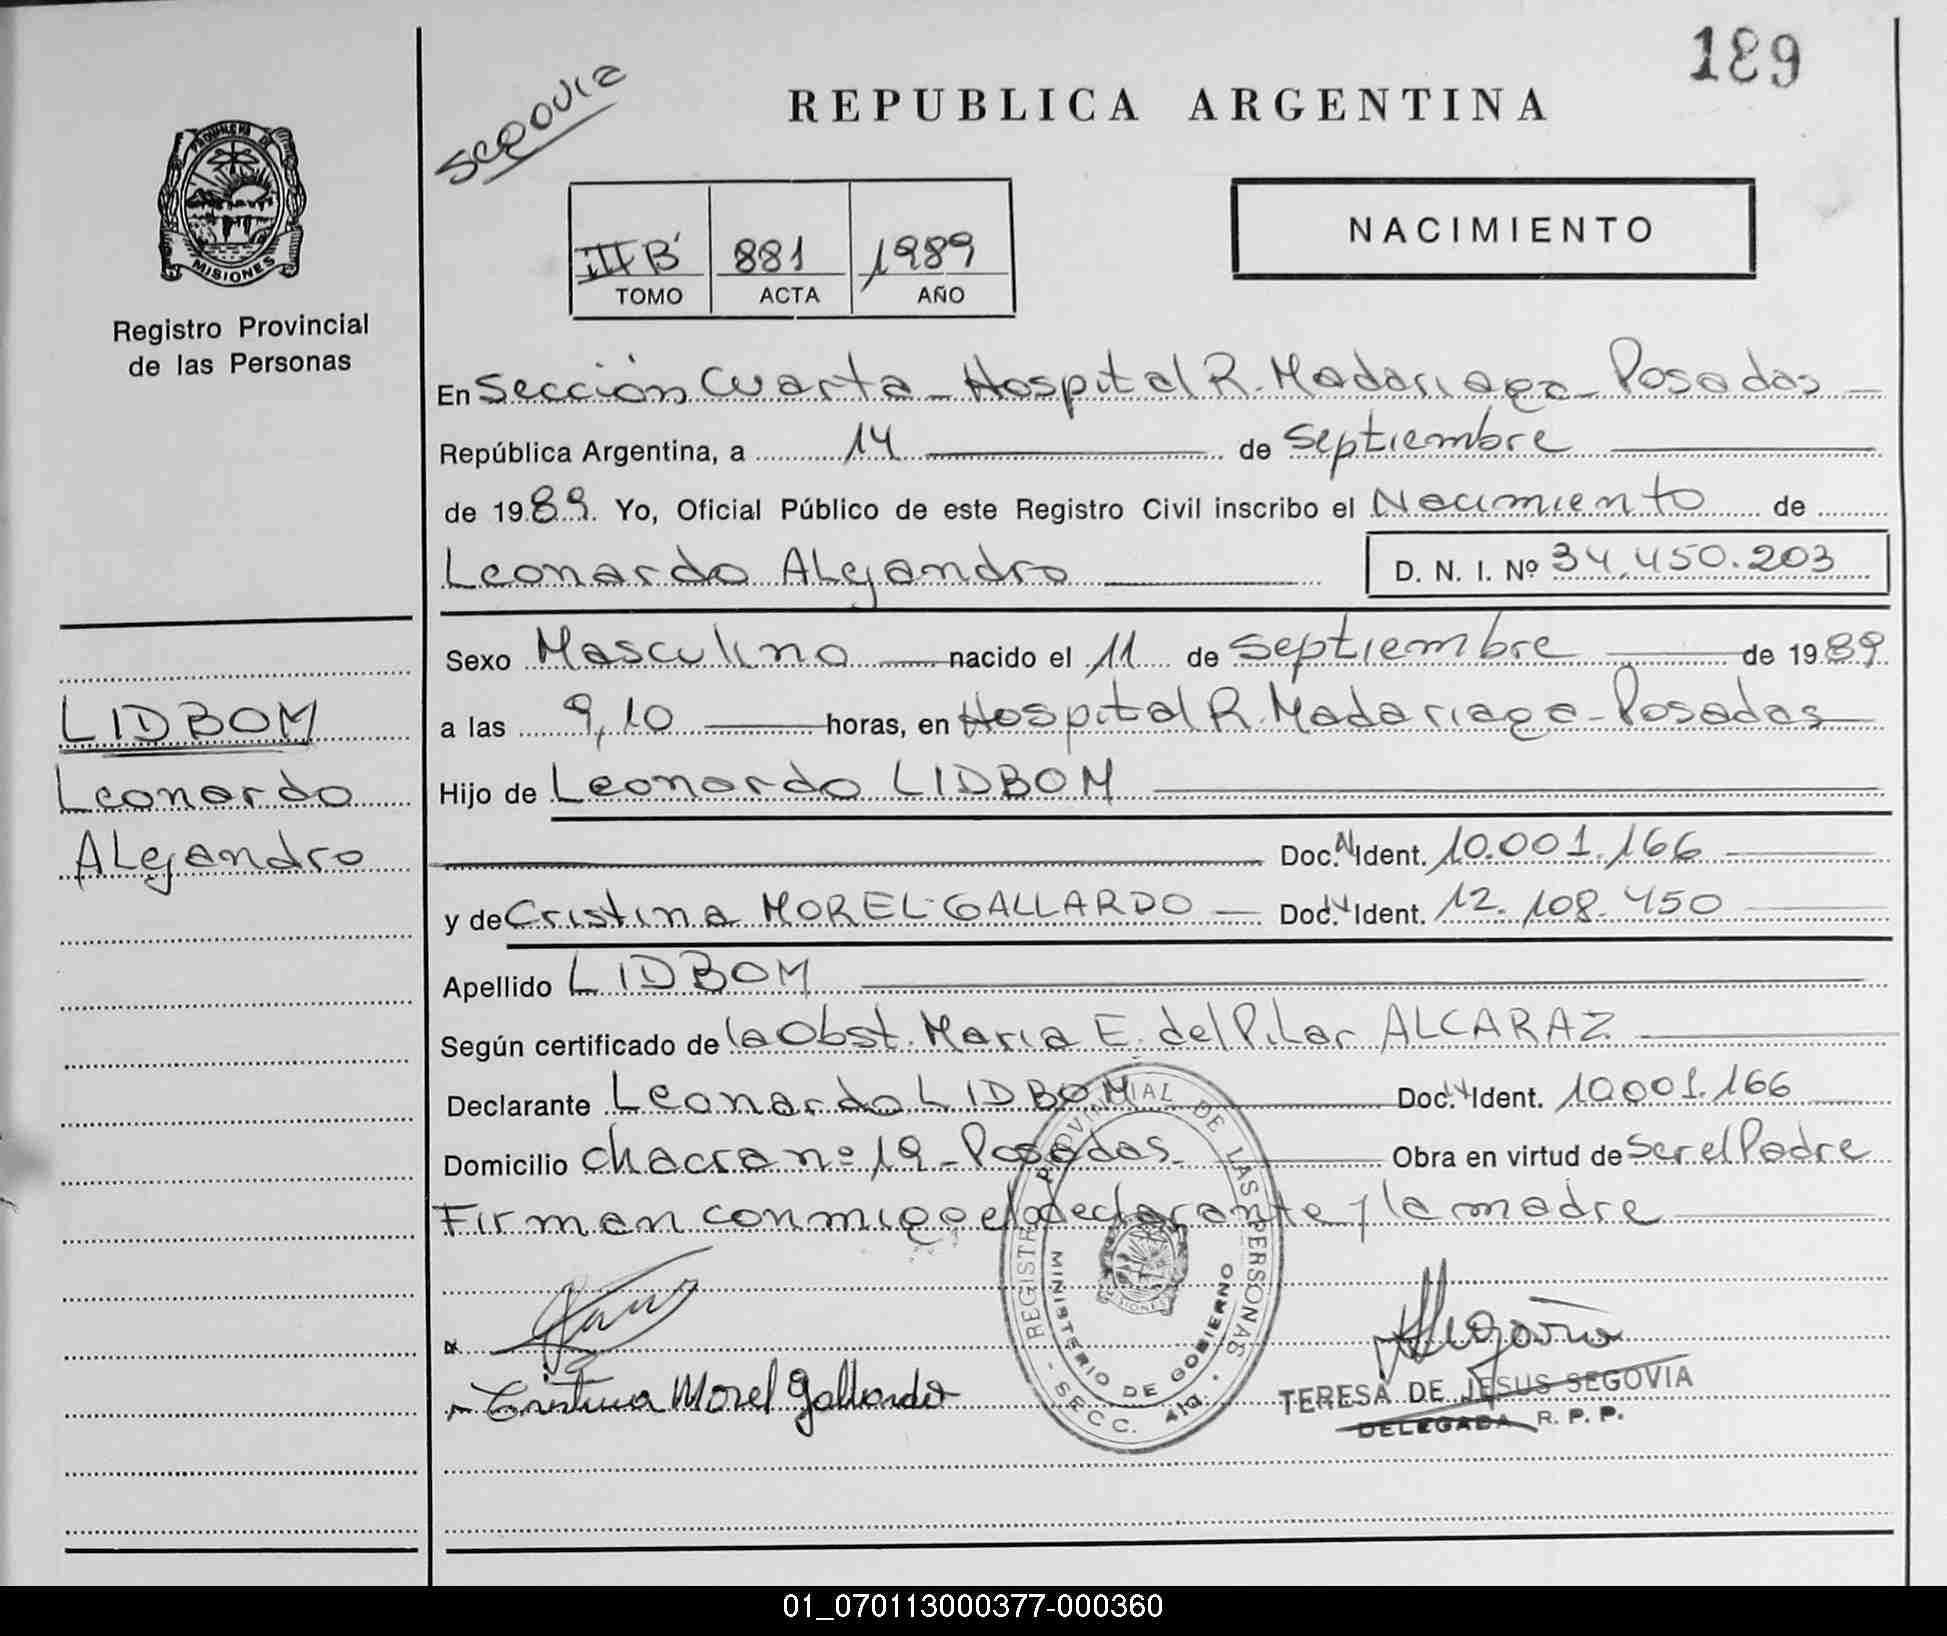 189
Segovia
REPUBLICA ARGENTINA
PROVINCIA DE
MISIONES
Registro Provincial
de las Personas
III B' 881 1989
TOMO ACTA AÑO
NACIMIENTO
En Sección Cuarta - Hospital R. Madariaga - Posadas -
República Argentina, a 14 de Septiembre
de 1989. Yo, Oficial Público de este Registro Civil inscribo el Nacimiento de
Leonardo Alejandro
D. N. I. Nº 34.450.203
Sexo Masculino nacido el 11 de Septiembre de 1989
a las 9,10 horas, en Hospital R. Madariaga - Posadas
Hijo de Leonardo LIDBOM
Doc. N Ident. 10.001.166
y de Cristina MOREL-GALLARDO - Doc. N Ident. 12.108.450
Apellido LIDBOM
Según certificado de la Obst. Maria E. del Pilar ALCARAZ
Declarante Leonardo LIDBOM Doc. N Ident. 10.001.166
Domicilio chacra nº 19 - Posadas - Obra en virtud de Ser el Padre
Firman conmigo el declarante y la madre
LIDBOM
Leonardo
Alejandro
REGISTRO PROVINCIAL DE LAS PERSONAS
MINISTERIO DE GOBIERNO
- SECC. 4ta. -
Cristina Morel Gallardo
Segovia
TERESA DE JESUS SEGOVIA
DELEGADA R. P. P.
01_070113000377-000360